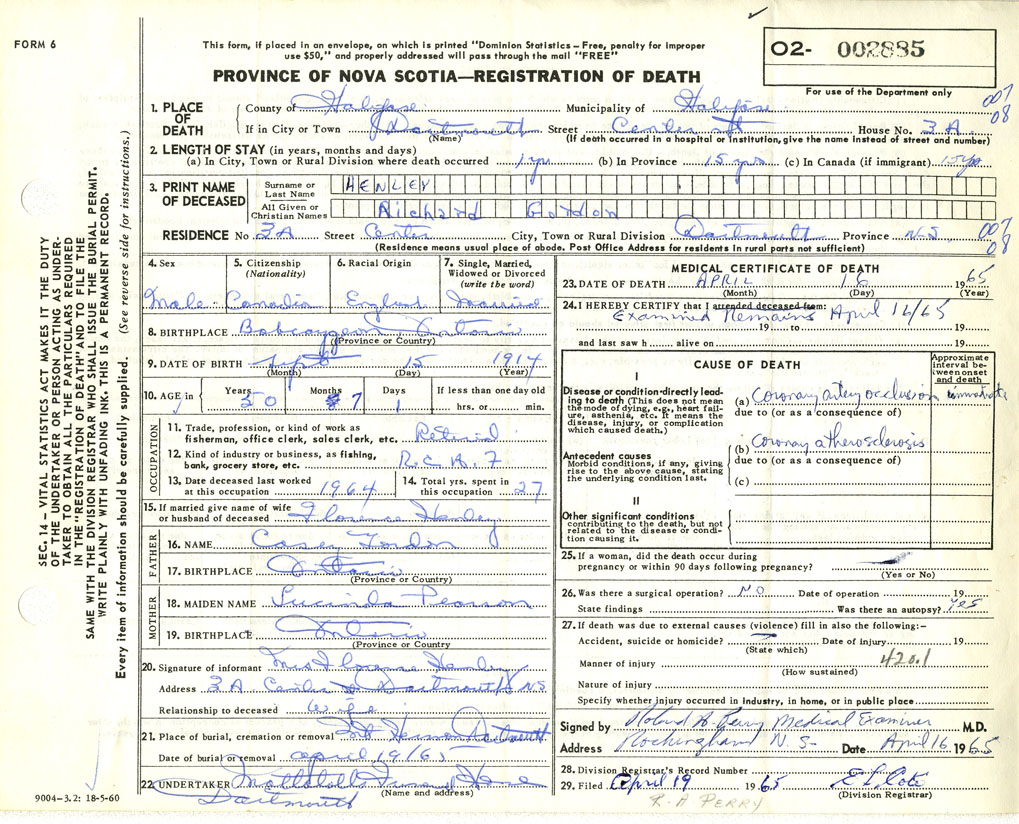 FORM 6
This form, if placed in an envelope, on which is printed "Dominion Statistics – Free, penalty for improper
use $50," and properly addressed will pass through the mail "FREE"
PROVINCE OF NOVA SCOTIA—REGISTRATION OF DEATH
O2- 002885
For use of the Department only
007
08
1. PLACE OF DEATH
County of Halifax Municipality of Halifax
If in City or Town Dartmouth Street Center St House No. 3A
(Name) (If death occurred in a hospital or institution, give the name instead of street and number)
2. LENGTH OF STAY (in years, months and days)
(a) In City, Town or Rural Division where death occurred 1 yr (b) In Province 15 yrs (c) In Canada (if immigrant)
3. PRINT NAME OF DECEASED
Surname or Last Name HENLEY
All Given or Christian Names Richard Gordon
RESIDENCE No 3A Street Center City, Town or Rural Division Dartmouth Province N.S. 007
08
(Residence means usual place of abode. Post Office Address for residents in rural parts not sufficient)
4. Sex Male
5. Citizenship (Nationality) Canadian
6. Racial Origin England
7. Single, Married, Widowed or Divorced (write the word) Married
8. BIRTHPLACE Bobcaygeon Ontario
(Province or Country)
9. DATE OF BIRTH Sept 15 1914
(Month) (Day) (Year)
10. AGE in Years 50 Months 7 Days 1 If less than one day old
hrs. or min.
OCCUPATION
11. Trade, profession, or kind of work as
fisherman, office clerk, sales clerk, etc. Retired
12. Kind of industry or business, as fishing,
bank, grocery store, etc. R.C.A.F
13. Date deceased last worked
at this occupation 1964
14. Total yrs. spent in
this occupation 27
15. If married give name of wife
or husband of deceased Florence Henley
FATHER
16. NAME Casey Gordon
17. BIRTHPLACE Ontario
(Province or Country)
MOTHER
18. MAIDEN NAME Lucinda Pearson
19. BIRTHPLACE Ontario
(Province or Country)
20. Signature of informant Mrs Florence Henley
Address 3A Center St Dartmouth NS
Relationship to deceased Wife
21. Place of burial, cremation or removal Dartmouth
Date of burial or removal april 19/65
22. UNDERTAKER Funeral Home
(Name and address)
Dartmouth
9004-3.2: 18-5-60
MEDICAL CERTIFICATE OF DEATH
23. DATE OF DEATH APRIL 16 1965
(Month) (Day) (Year)
24. I HEREBY CERTIFY that I attended deceased from:
Examined Remains April 16/65
19 to 19
and last saw h alive on 19
CAUSE OF DEATH
Approximate interval between onset and death
I
Disease or condition directly leading to death (This does not mean the mode of dying, e.g., heart failure, asthenia, etc. It means the disease, injury, or complication which caused death.)
(a) Coronary artery occlusion immediate
due to (or as a consequence of)
(b) Coronary atherosclerosis
due to (or as a consequence of)
Antecedent causes
Morbid conditions, if any, giving rise to the above cause, stating the underlying condition last.
(c)
II
Other significant conditions
contributing to the death, but not related to the disease or condition causing it.
25. If a woman, did the death occur during
pregnancy or within 90 days following pregnancy?
(Yes or No)
26. Was there a surgical operation? NO Date of operation 19
State findings Was there an autopsy? yes
27. If death was due to external causes (violence) fill in also the following:–
Accident, suicide or homicide? Date of injury 19
(State which)
Manner of injury 420.1
(How sustained)
Nature of injury
Specify whether injury occurred in industry, in home, or in public place
Signed by Roland A. Perry Medical Examiner M.D.
Address Rockingham N.S. Date April 16 1965
28. Division Registrar's Record Number
29. Filed April 19 1965 E L Cote
(Division Registrar)
R A PERRY
SEC. 14 – VITAL STATISTICS ACT MAKES IT THE DUTY
OF THE UNDERTAKER OR PERSON ACTING AS UNDER-
TAKER TO OBTAIN ALL THE PARTICULARS REQUIRED
IN THE "REGISTRATION OF DEATH" AND TO FILE THE
SAME WITH THE DIVISION REGISTRAR WHO SHALL ISSUE THE BURIAL PERMIT.
WRITE PLAINLY WITH UNFADING INK. THIS IS A PERMANENT RECORD.
Every item of information should be carefully supplied. (See reverse side for instructions.)